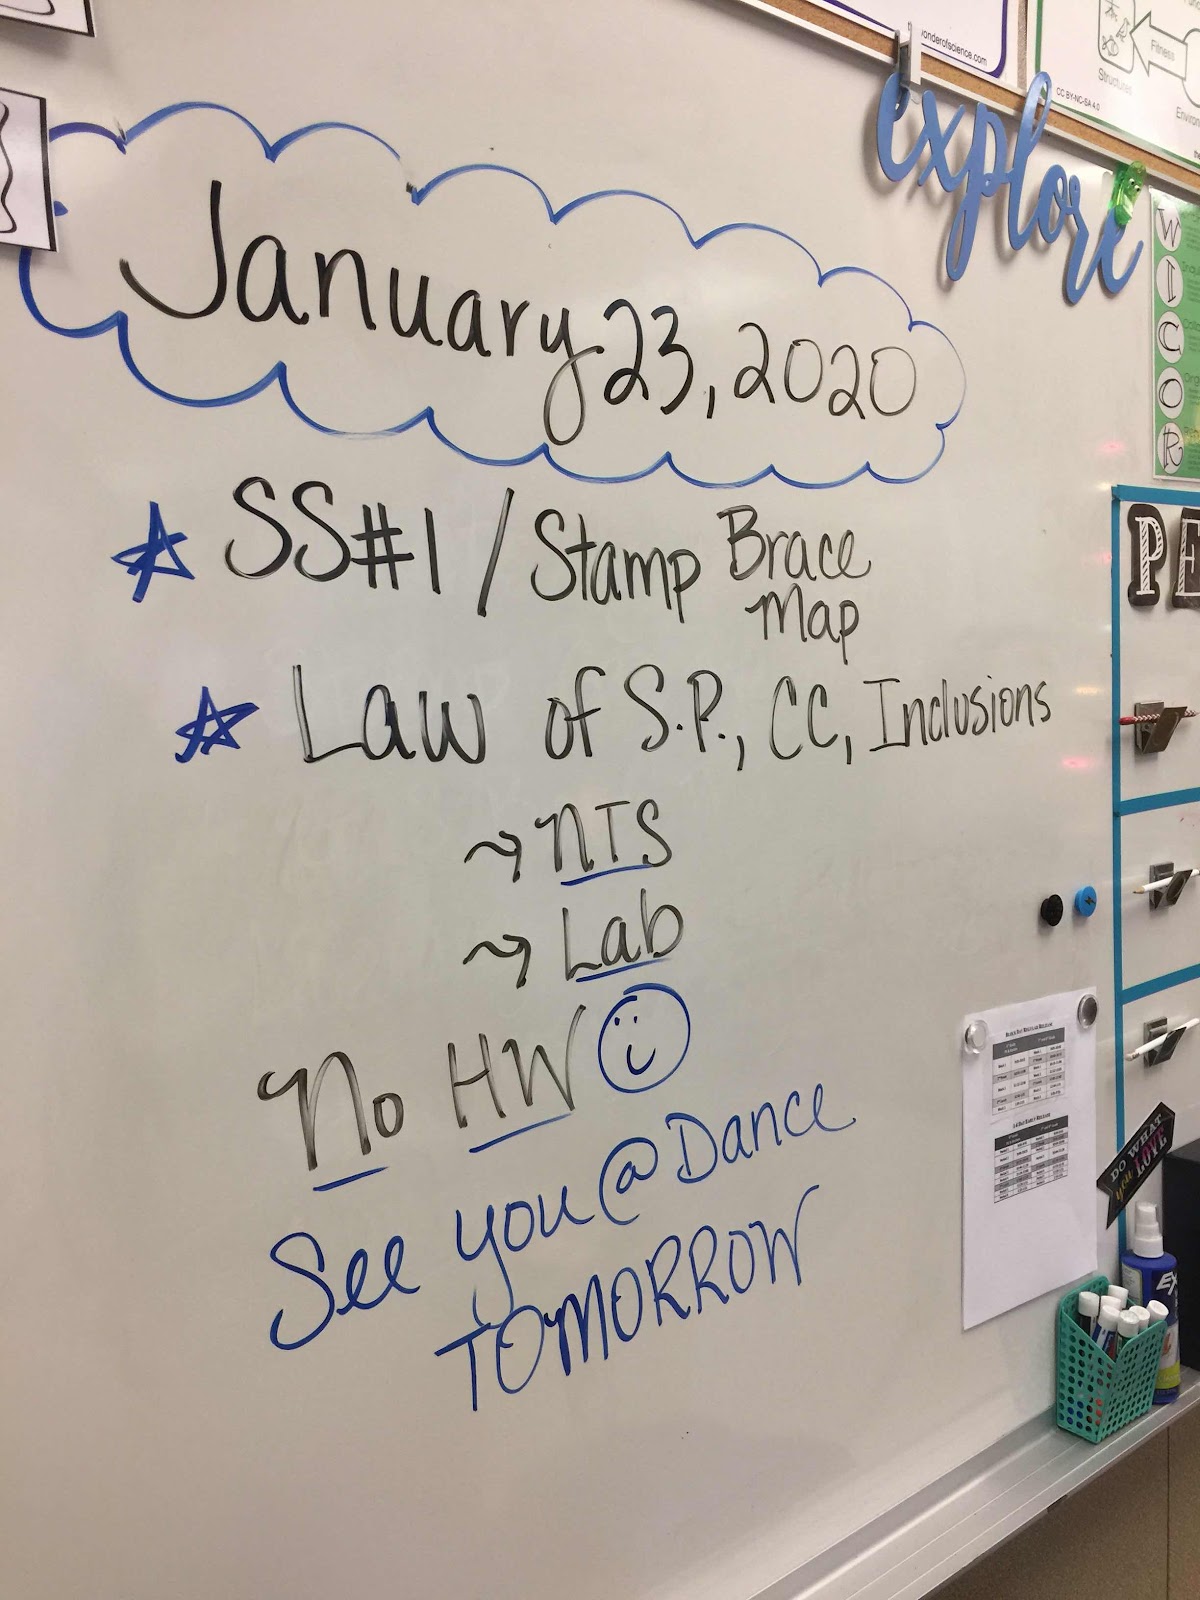 January 23, 2020
SS#1 / Stamp Brace
Map
Law of S.P., CC, Inclusions
NTS
Lab
No HW
See you @ Dance
TOMORROW
explore
onderofscience.com
CC BY-NC-SA 4.0
Structures
Fitness
Environ
W
I
C
O
R
PE
DO WHAT
you LOVE
EX